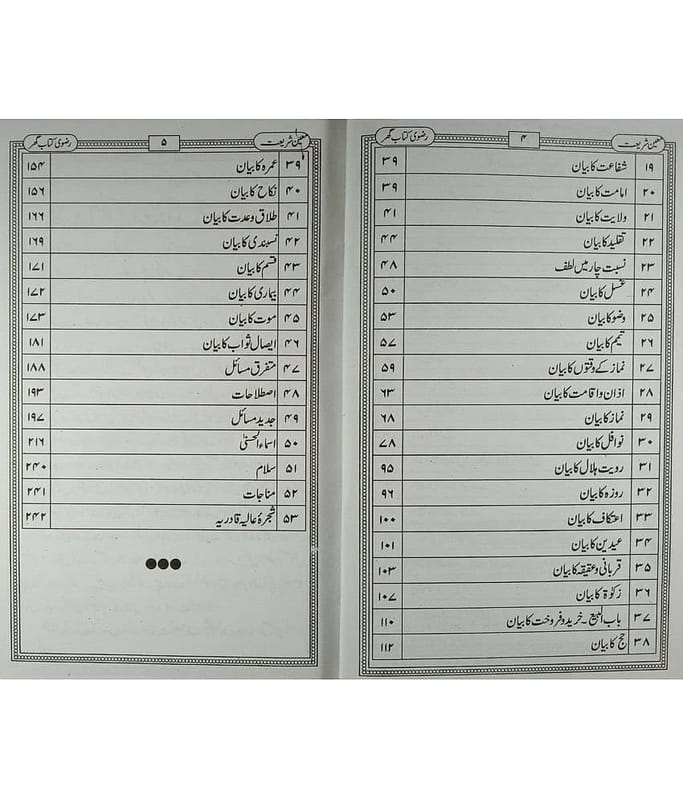 معین شریعت ۴ رضوی کتاب گھر
۱۹ شفاعت کا بیان ۳۹
۲۰ امامت کا بیان ۳۹
۲۱ ولایت کا بیان ۴۱
۲۲ تقلید کا بیان ۴۴
۲۳ نسبت چار میں لطف ۴۸
۲۴ غسل کا بیان ۵۰
۲۵ وضو کا بیان ۵۳
۲۶ تیمم کا بیان ۵۷
۲۷ نماز کے وقتوں کا بیان ۵۹
۲۸ اذان و اقامت کا بیان ۶۳
۲۹ نماز کا بیان ۶۸
۳۰ نوافل کا بیان ۷۸
۳۱ رویت ہلال کا بیان ۹۵
۳۲ روزہ کا بیان ۹۶
۳۳ اعتکاف کا بیان ۱۰۰
۳۴ عیدین کا بیان ۱۰۱
۳۵ قربانی و عقیقہ کا بیان ۱۰۳
۳۶ زکوٰۃ کا بیان ۱۰۷
۳۷ باب البیع۔ خرید و فروخت کا بیان ۱۱۰
۳۸ حج کا بیان ۱۱۲
معین شریعت ۵ رضوی کتاب گھر
۳۹ عمرہ کا بیان ۱۵۴
۴۰ نکاح کا بیان ۱۵۶
۴۱ طلاق و عدت کا بیان ۱۶۶
۴۲ نسبندی کا بیان ۱۶۹
۴۳ قسم کا بیان ۱۷۱
۴۴ بیماری کا بیان ۱۷۲
۴۵ موت کا بیان ۱۷۳
۴۶ ایصال ثواب کا بیان ۱۸۱
۴۷ متفرق مسائل ۱۸۸
۴۸ اصطلاحات ۱۹۳
۴۹ جدید مسائل ۱۹۷
۵۰ اسماء الحسنیٰ ۲۱۶
۵۱ سلام ۲۴۰
۵۲ مناجات ۲۴۱
۵۳ شجرۂ عالیہ قادریہ ۲۴۲